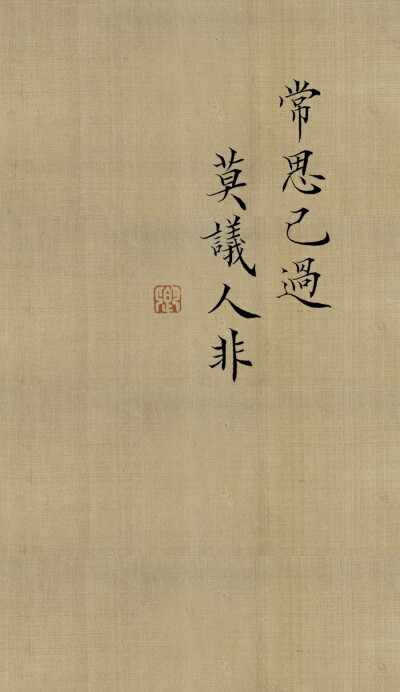 常思己過
莫議人非